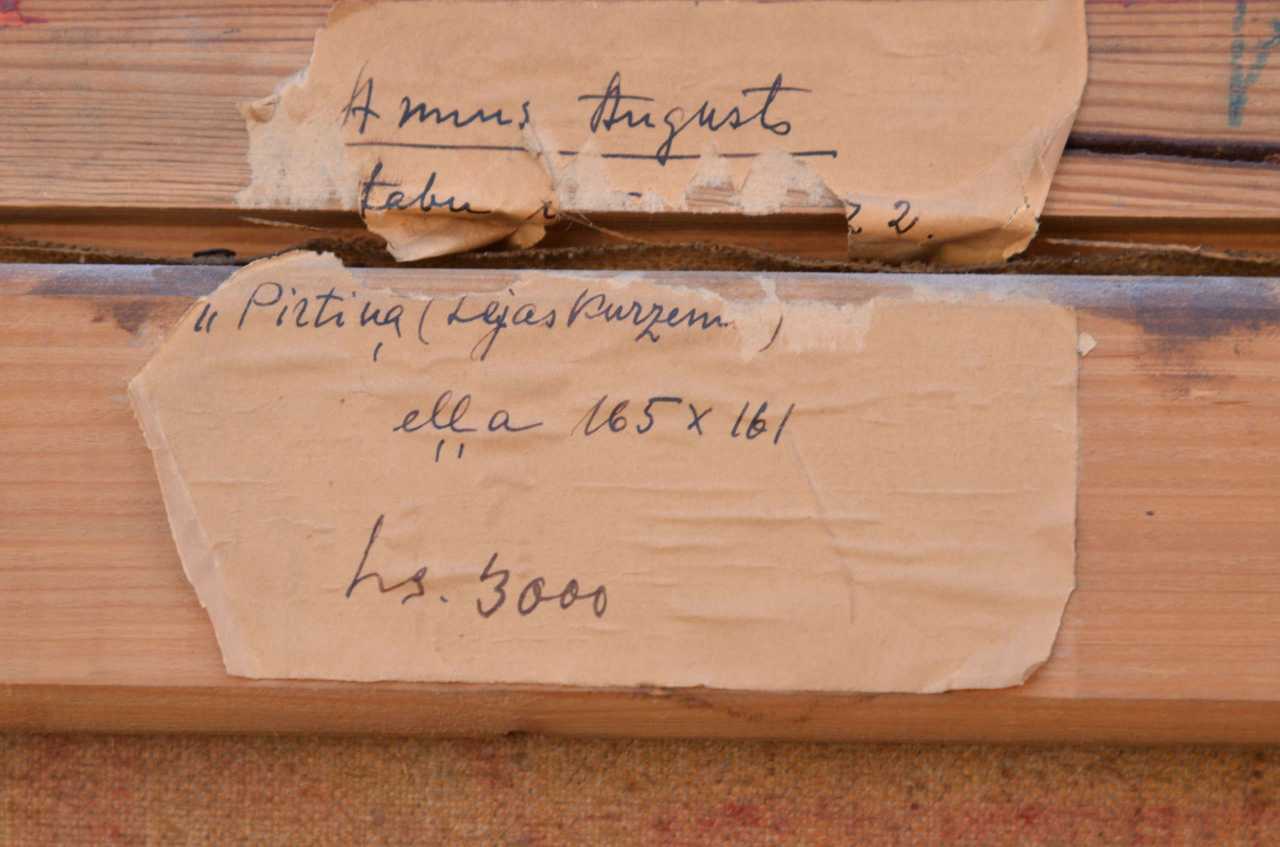 Annus Augusts
tabu 2.
„Pirtiņa (Lejaskurzem )
eļļa 165 x 161
3000